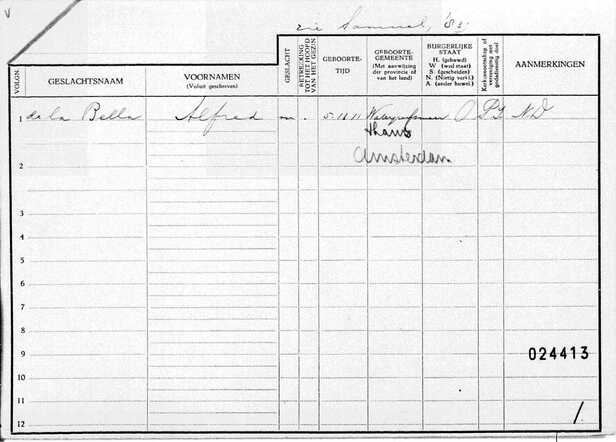 v
zie Samuel,
VOLGN. GESLACHTSNAAM VOORNAMEN (Voluit geschreven) GESLACHT BETREKKING TOT HET HOOFD VAN HET GEZIN GEBOORTE-TIJD GEBOORTE-GEMEENTE (Met aanwijzing der provincie of van het land) BURGERLIJKE STAAT H. (gehuwd) W (wed staat) S (gescheiden) N. (Niettig verkl.) A. (ander huwel.) Kerkgenootschap of vereeniging met godsdienstig doel AANMERKINGEN
1 de la Bella Alfred m . O P I N D
thans
Amsterdam
2
3
4
5
6
7
8
9 024413
10
11
12 1.